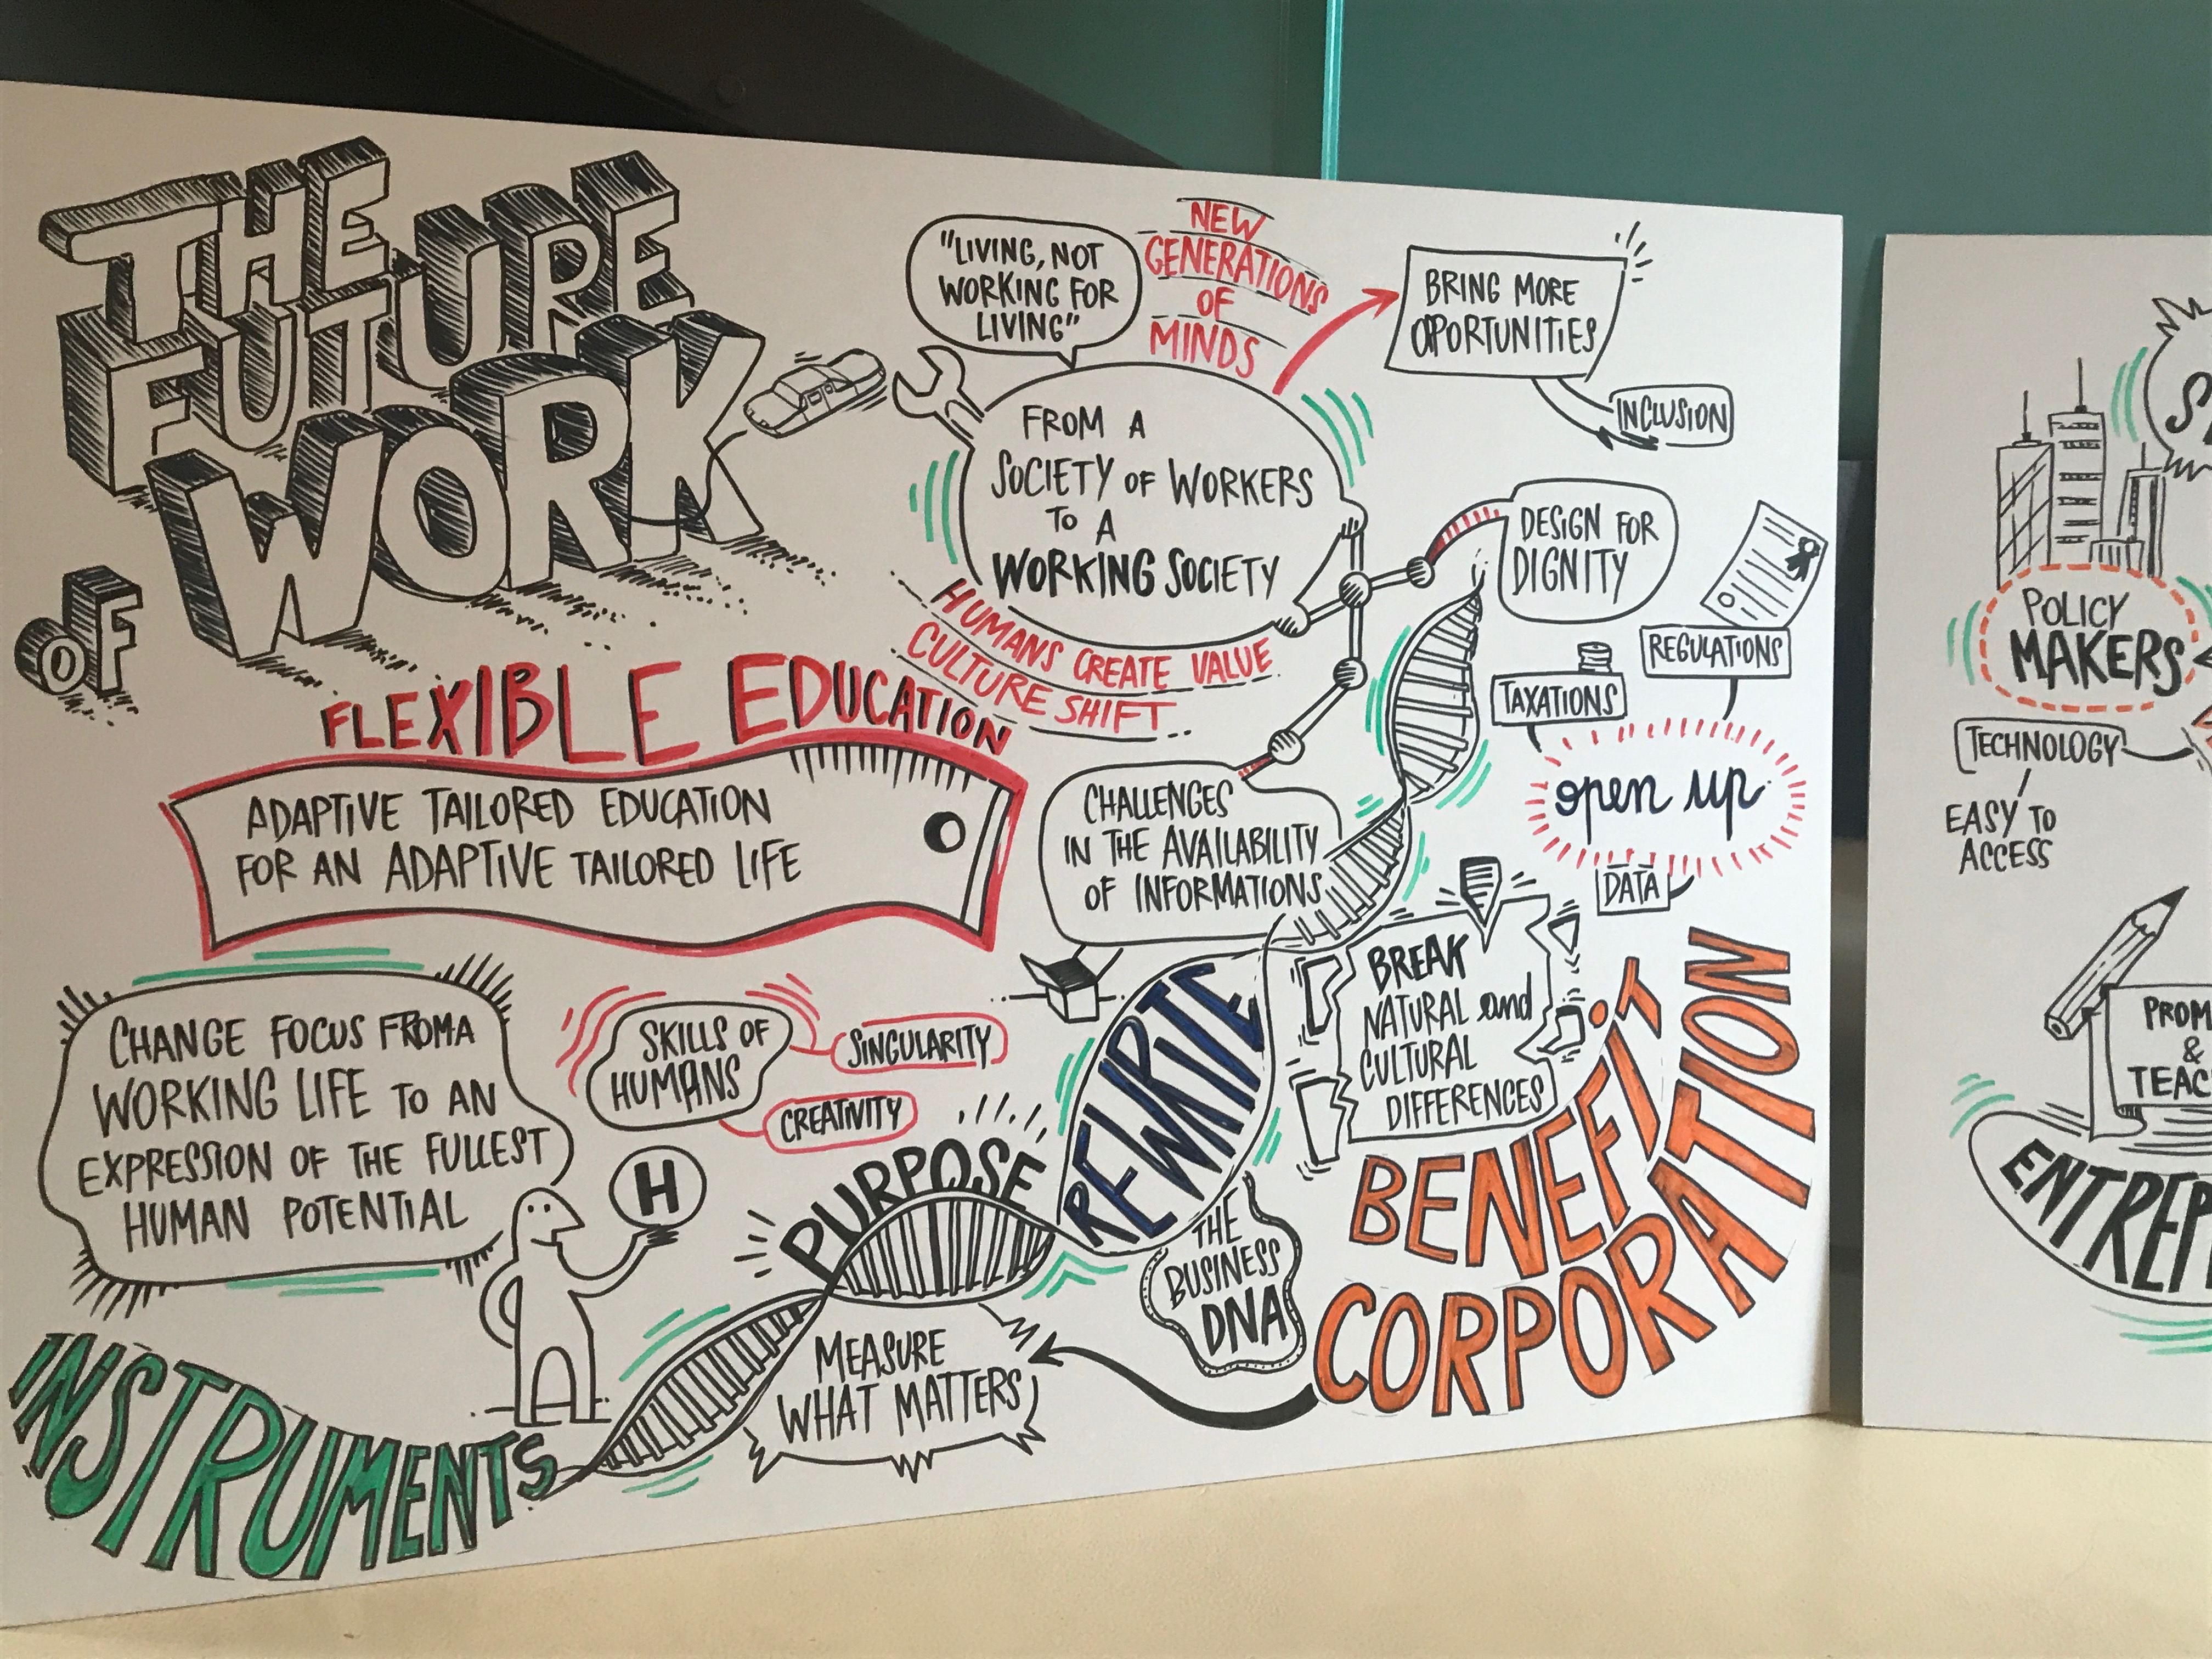 THE
FUTURE
OF WORK
"LIVING, NOT
WORKING FOR
LIVING"
NEW
GENERATIONS
OF
MINDS
BRING MORE
OPORTUNITIES
INCLUSION
FROM A
SOCIETY OF WORKERS
TO A
WORKING SOCIETY
HUMANS CREATE VALUE
CULTURE SHIFT
DESIGN FOR
DIGNITY
REGULATIONS
TAXATIONS
open up
DATA
FLEXIBLE EDUCATION
ADAPTIVE TAILORED EDUCATION
FOR AN ADAPTIVE TAILORED LIFE
CHALLENGES
IN THE AVAILABILITY
OF INFORMATIONS
BREAK
NATURAL and
CULTURAL
DIFFERENCES
CHANGE FOCUS FROM A
WORKING LIFE TO AN
EXPRESSION OF THE FULLEST
HUMAN POTENTIAL
SKILLS OF
HUMANS
SINGULARITY
CREATIVITY
H
PURPOSE
REWRITE
THE
BUSINESS
DNA
BENEFIT
CORPORATION
MEASURE
WHAT MATTERS
INSTRUMENTS
POLICY
MAKERS
TECHNOLOGY
EASY TO
ACCESS
&